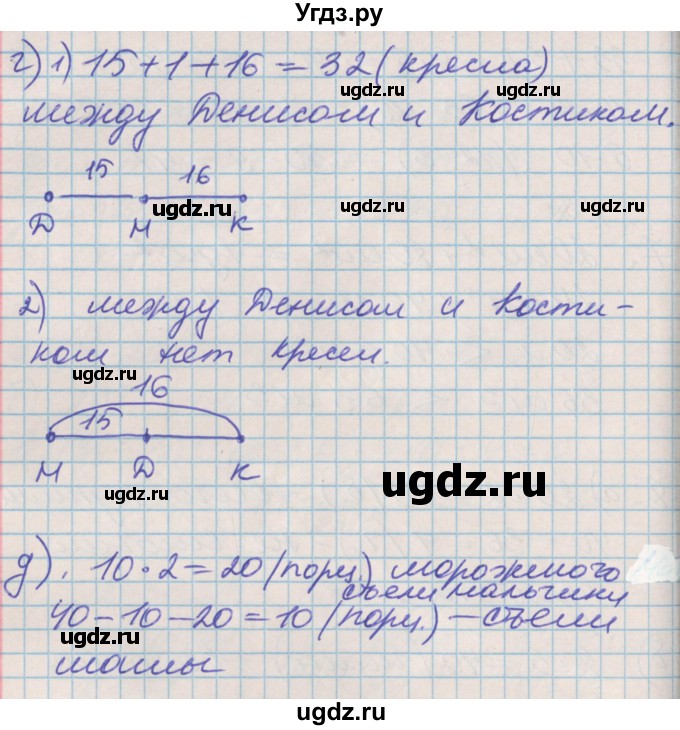 Угдз.ру
г) 1) 15 + 1 + 16 = 32 (кресла)
ugdz.ru ugdz.ru
между Денисом и Костиком.
15 16
ugdz.ru ugdz.ru ugdz.ru
Д М К
2) между Денисом и Кости-
ком нет кресел.
ugdz.ru
16
15
М Д К
ugdz.ru
ugdz.ru
д). 10 · 2 = 20 (порц.) мороженого
съели мальчики
40 - 10 - 20 = 10 (порц.) - съели
ugdz.ru
ugdz.ru